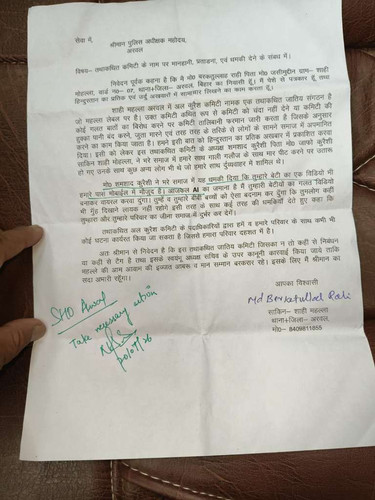 सेवा में,
श्रीमान पुलिस अधीक्षक महोदय,
अरवल
विषय– तथाकथित कमिटी के नाम पर मानहानी, प्रताड़ना, एवं धमकी देने के संबंध में।
निवेदन पूर्वक कहना है कि मै मो० बरकतुल्लाह राही पिता मो० जसीमुद्दीन ग्राम– शाही
मोहल्ला, वार्ड न०– 07, थाना+जिला– अरवल, बिहार का निवासी हूँ। मैं पेशे से पत्रकार हूँ तथा
हिन्दुस्तान का प्रतिक एवं उर्दु अखबार में समाचार लिखने का काम करता हूँ।
शाही महल्ला अरवल में अल कुरैश कमिटी नामक एक तथाकथित जातिय संगठन है
जो महल्ला लेबल पर है। उक्त कमिटी कथित रूप से कमिटी को चंदा नहीं देने या कमिटी की
कोई गलत बातों का बिरोध करने पर कमिटी तालिबानी फरमान जारी करता है जिसके अनुसार
हुक्का पानी बंद करने, जुता मारने एवं तरह तरह के तरिके से लोगों के सामने समाज में अपमानित
करने का काम किया जाता है। हमने इसी बातो को हिन्दुस्तान का प्रतिक अखबार में प्रकाशित करवा
दिया। इसी को लेकर इस तथाकथित कमिटी के अध्यक्ष शमशाद कुरैशी पिता मो० जाफो कुरैशी
साकिन शाही मोहल्ला, ने भरे समाज में हमारे साथ गाली गलौज के साथ मार पीट करने पर उतारू
हो गए उनके साथ कुछ अन्य लोग भी थे जो हमारे साथ दुर्व्यवहार में शामिल थे।
मो० शमशाद कुरैशी ने भरे समाज में यह धमकी दिया कि तुम्हारे बेटी का एक विडियो भी
हमारे पास मोबाईल में मौजूद है। आजकल AI का जमाना है मैं तुम्हारी बेटीयों का गलत विडियो
बनाकर वायरल करवा दूंगा। तुम्हे व तुम्हारे बीबी बच्चों को ऐसा बदनाम कर दूँगा कि तुमलोग कहीं
भी मुँह दिखाने लायक नहीं रहोगे इसी तरह के साथ कई तरह की धमकियाँ देते हुए कहा कि
तुम्हारा और तुम्हारे परिवार का जीना समाज में दुर्भर कर देंगें।
तथाकथित अल कुरैश कमिटी के पदाधिकारियों द्वारा हमें व हमारे परिवार के साथ कभी भी
कोई घटना कार्यरत किया जा सकता है जिससे हमारा परिवार दहशत में है।
अतः श्रीमान से निवेदन है कि इस तथाकथित जातिय कमिटी जिसका न तो कहीं से निबंधन
या कहीं से टैग है तथा इसके स्वयंभू अध्यक्ष सचिव के उपर कानूनी कारवाई किया जाये ताकि
महल्ले की आम आवाम की इज्जत आबरू व मान सम्मान बरकरार रहे। इसके लिए मैं श्रीमान का
सदा आभारी रहूँगा।
आपका विश्वासी
Md Barkatullah Rahi
साकिन– शाही महल्ला
थाना+जिला– अरवल,
मो०– 8409811655
SHO Arwal
Take necessary action